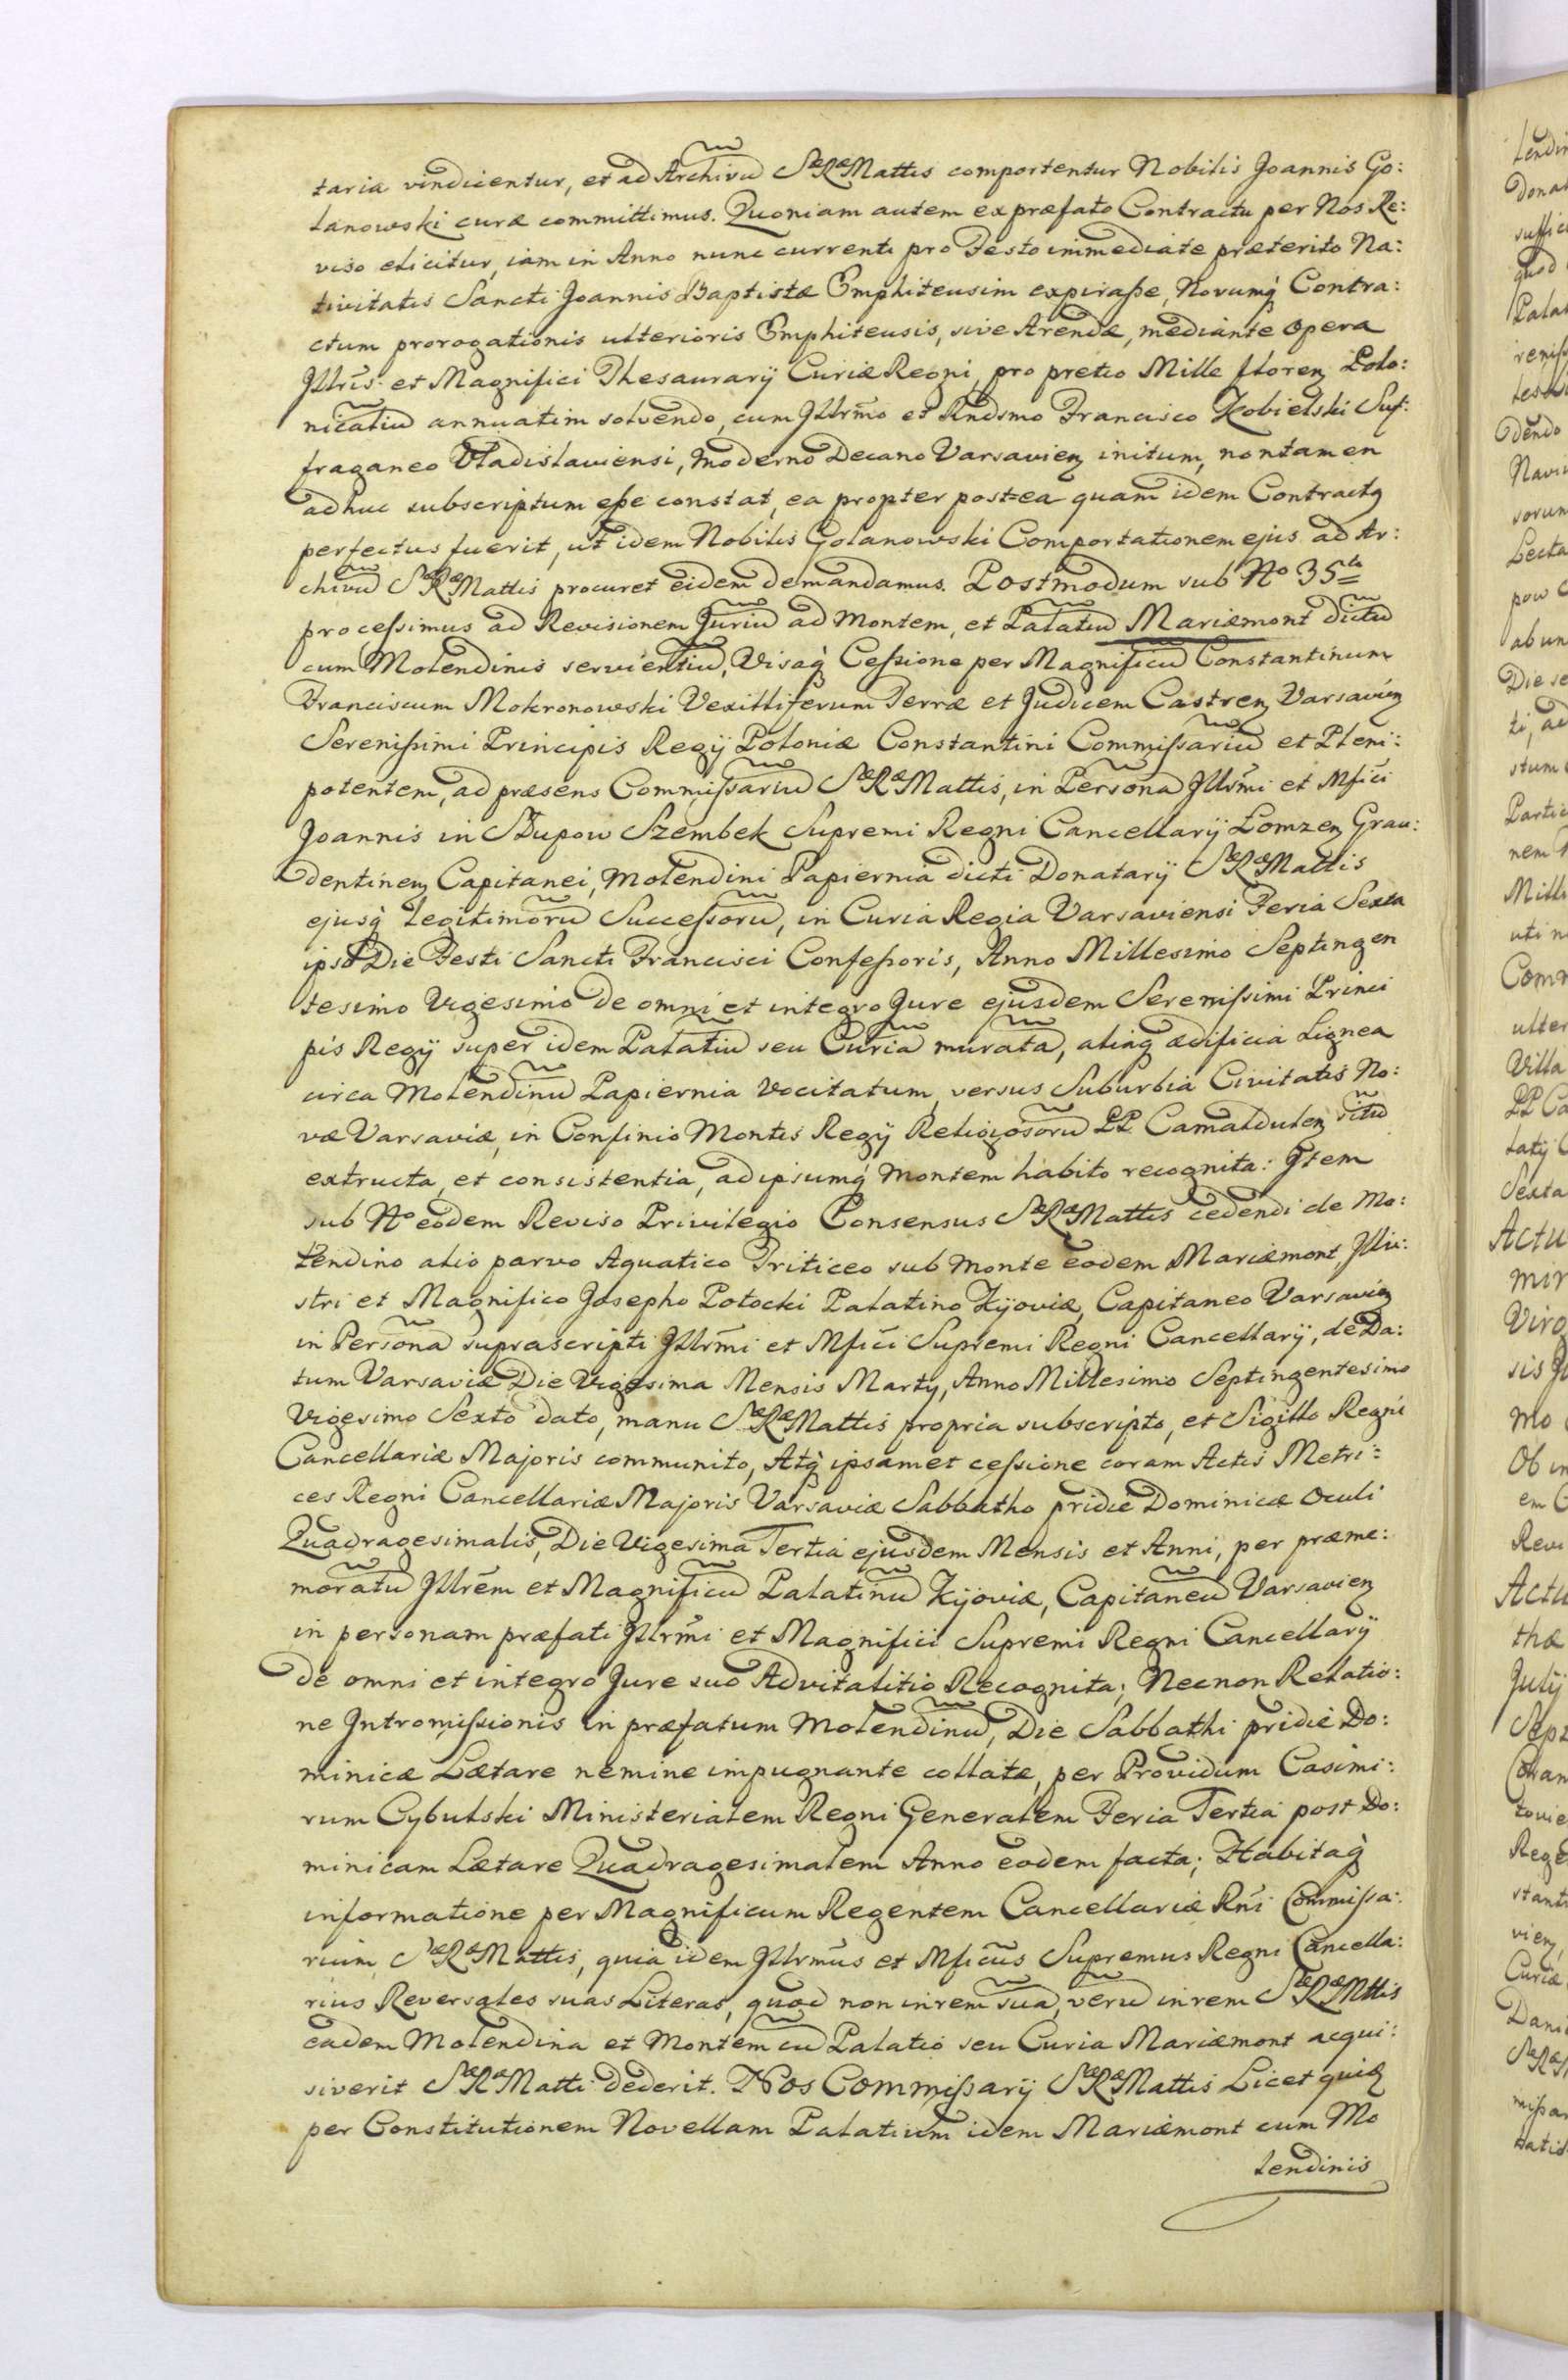 taria vindicentur, et ad Archivu SæRæMattis comportentur Nobilis Joannis Go:
lanowski curæ committimus. Quoniam autem ex præfato Contractu per Nos Re:
viso elicitur, iam in Anno nunc currenti pro Festo immediate præterito Na:
tivitatis Sancti Joannis Baptistæ Emphiteusim expiraſse, Novumq́ Contra:
ctum prorogationis ulterioris Emphiteusis, sive Arendæ, mediante opera
Jllris: et Magnifici Thesaurarÿ Curiæ Regni, pro pretio Mille floren Polo:
nicatiu annuatim solvendo, cum Jllrmo et Rndsmo Francisco Kobielski Suf:
fraganeo Vladislaviensi, moderno Decano Varsavien initum, non tamen
adhuc subscriptum eſse constat, ea propter post=ea quam idem Contractq
perfectus fuerit, ut idem Nobilis Golanowski Comportationem ejus ad Ar:
chivu SæRæMattis procuret eidem demandamus. Postmodum sub No 35to
proceſsimus ad Revisionem Juriu ad Montem, et Palatiu Mariæmont dictu
cum Molendinis servientiu, Visaq́ Ceſsione per Magnificu Constantinum
Franciscum Mokronowski Vexilliferum Terræ et Judicem Castren Varsavien
Sereniſsimi Principis Regÿ Poloniæ Constantini Commiſsariu et Pleni:
potentem, ad præsens Commiſsariu SæRæMattis, in Persona Jllrmi et Mfici
Joannis in Słupow Szembek Supremi Regni Cancellarÿ Łomzen Grau:
dentinen Capitanei, Molendini Papiernia dicti Donatarÿ SæRæMattis
ejusq́ Legitimoru Succeſsoru, in Curia Regia Varsaviensi Feria Sexta
ipso Die Festi Sancti Francisci Confeſsoris, Anno Millesimo Septingen
tesimo Vigesimo de omni et integro Jure ejusdem Sereniſsimi Princi
pis Regÿ super idem Palatiu seu Curia murata, aliaq ædificia Lignea
circa Molendinu Papiernia Vocitatum, versus Suburbia Civitatis No:
væ Varsaviæ, in Confinio Montis Regÿ Religiosoru PP. Camaldulen situ
extructa, et consistentia, ad ipsumq́ Montem habito recognita: Jtem
sub No eodem Reviso Privilegio Consensus SæRæMattis cedendi de Mo:
lendino alio parvo Aquatico Triticeo sub Monte eodem Mariæmont, Jllu:
stri et Magnifico Josepho Potocki Palatino Kÿoviæ, Capitaneo Varsavien
in Persona suprascripti Jllrmi et Mfici Supremi Regni Cancellarÿ, de Da:
tum Varsaviæ Die Vigesima Mensis Martÿ, Anno Millesimo Septingentesimo
Vigesimo Sexto dato, manu SæRæMattis propria subscripto, et Sigillo Regni
Cancellariæ Majoris communito, Atq́ ipsamet ceſsione coram Actis Metri:
ces Regni Cancellariæ Majoris Varsaviæ Sabbatho pridie Dominicæ Oculi
Quadragesimalis, Die Vigesima Tertia ejusdem Mensis et Anni, per præme:
moratu Jllrem et Magnificu Palatinu Kÿoviæ, Capitaneu Varsavien
in personam præfati Jllrmi et Magnifici Supremi Regni Cancellarÿ
de omni et integro Jure suo Advitalitio Recognita; Necnon Relatio:
ne Jntromiſsionis in præfatum Molendinu, Die Sabbathi pridie Do:
minicæ Lætare nemine impugnante collatæ, per Providum Casimi:
rum Cybulski Ministerialem Regni Generalem Feria Tertia post Do:
minicam Lætare Quadragesimalem Anno eodem facta; Habitaq́
informatione per Magnificum Regentem Cancellariæ Rni Commiſsa:
rium SæRæMattis, quia idem Jllrmus et Mficus Supremus Regni Cancella:
rius Reversales suas Literas, quod non in rem sua, veru in rem SæRæMttis
eadem Molendina et Montem cu Palatio seu Curia Mariæmont acqui:
siverit SæRæMatti dederit. Nos Commiſsarÿ SæRæMattis Licet quid
per Constitutionem Novellam Palatium idem Mariæmont cum Mo
lendinis